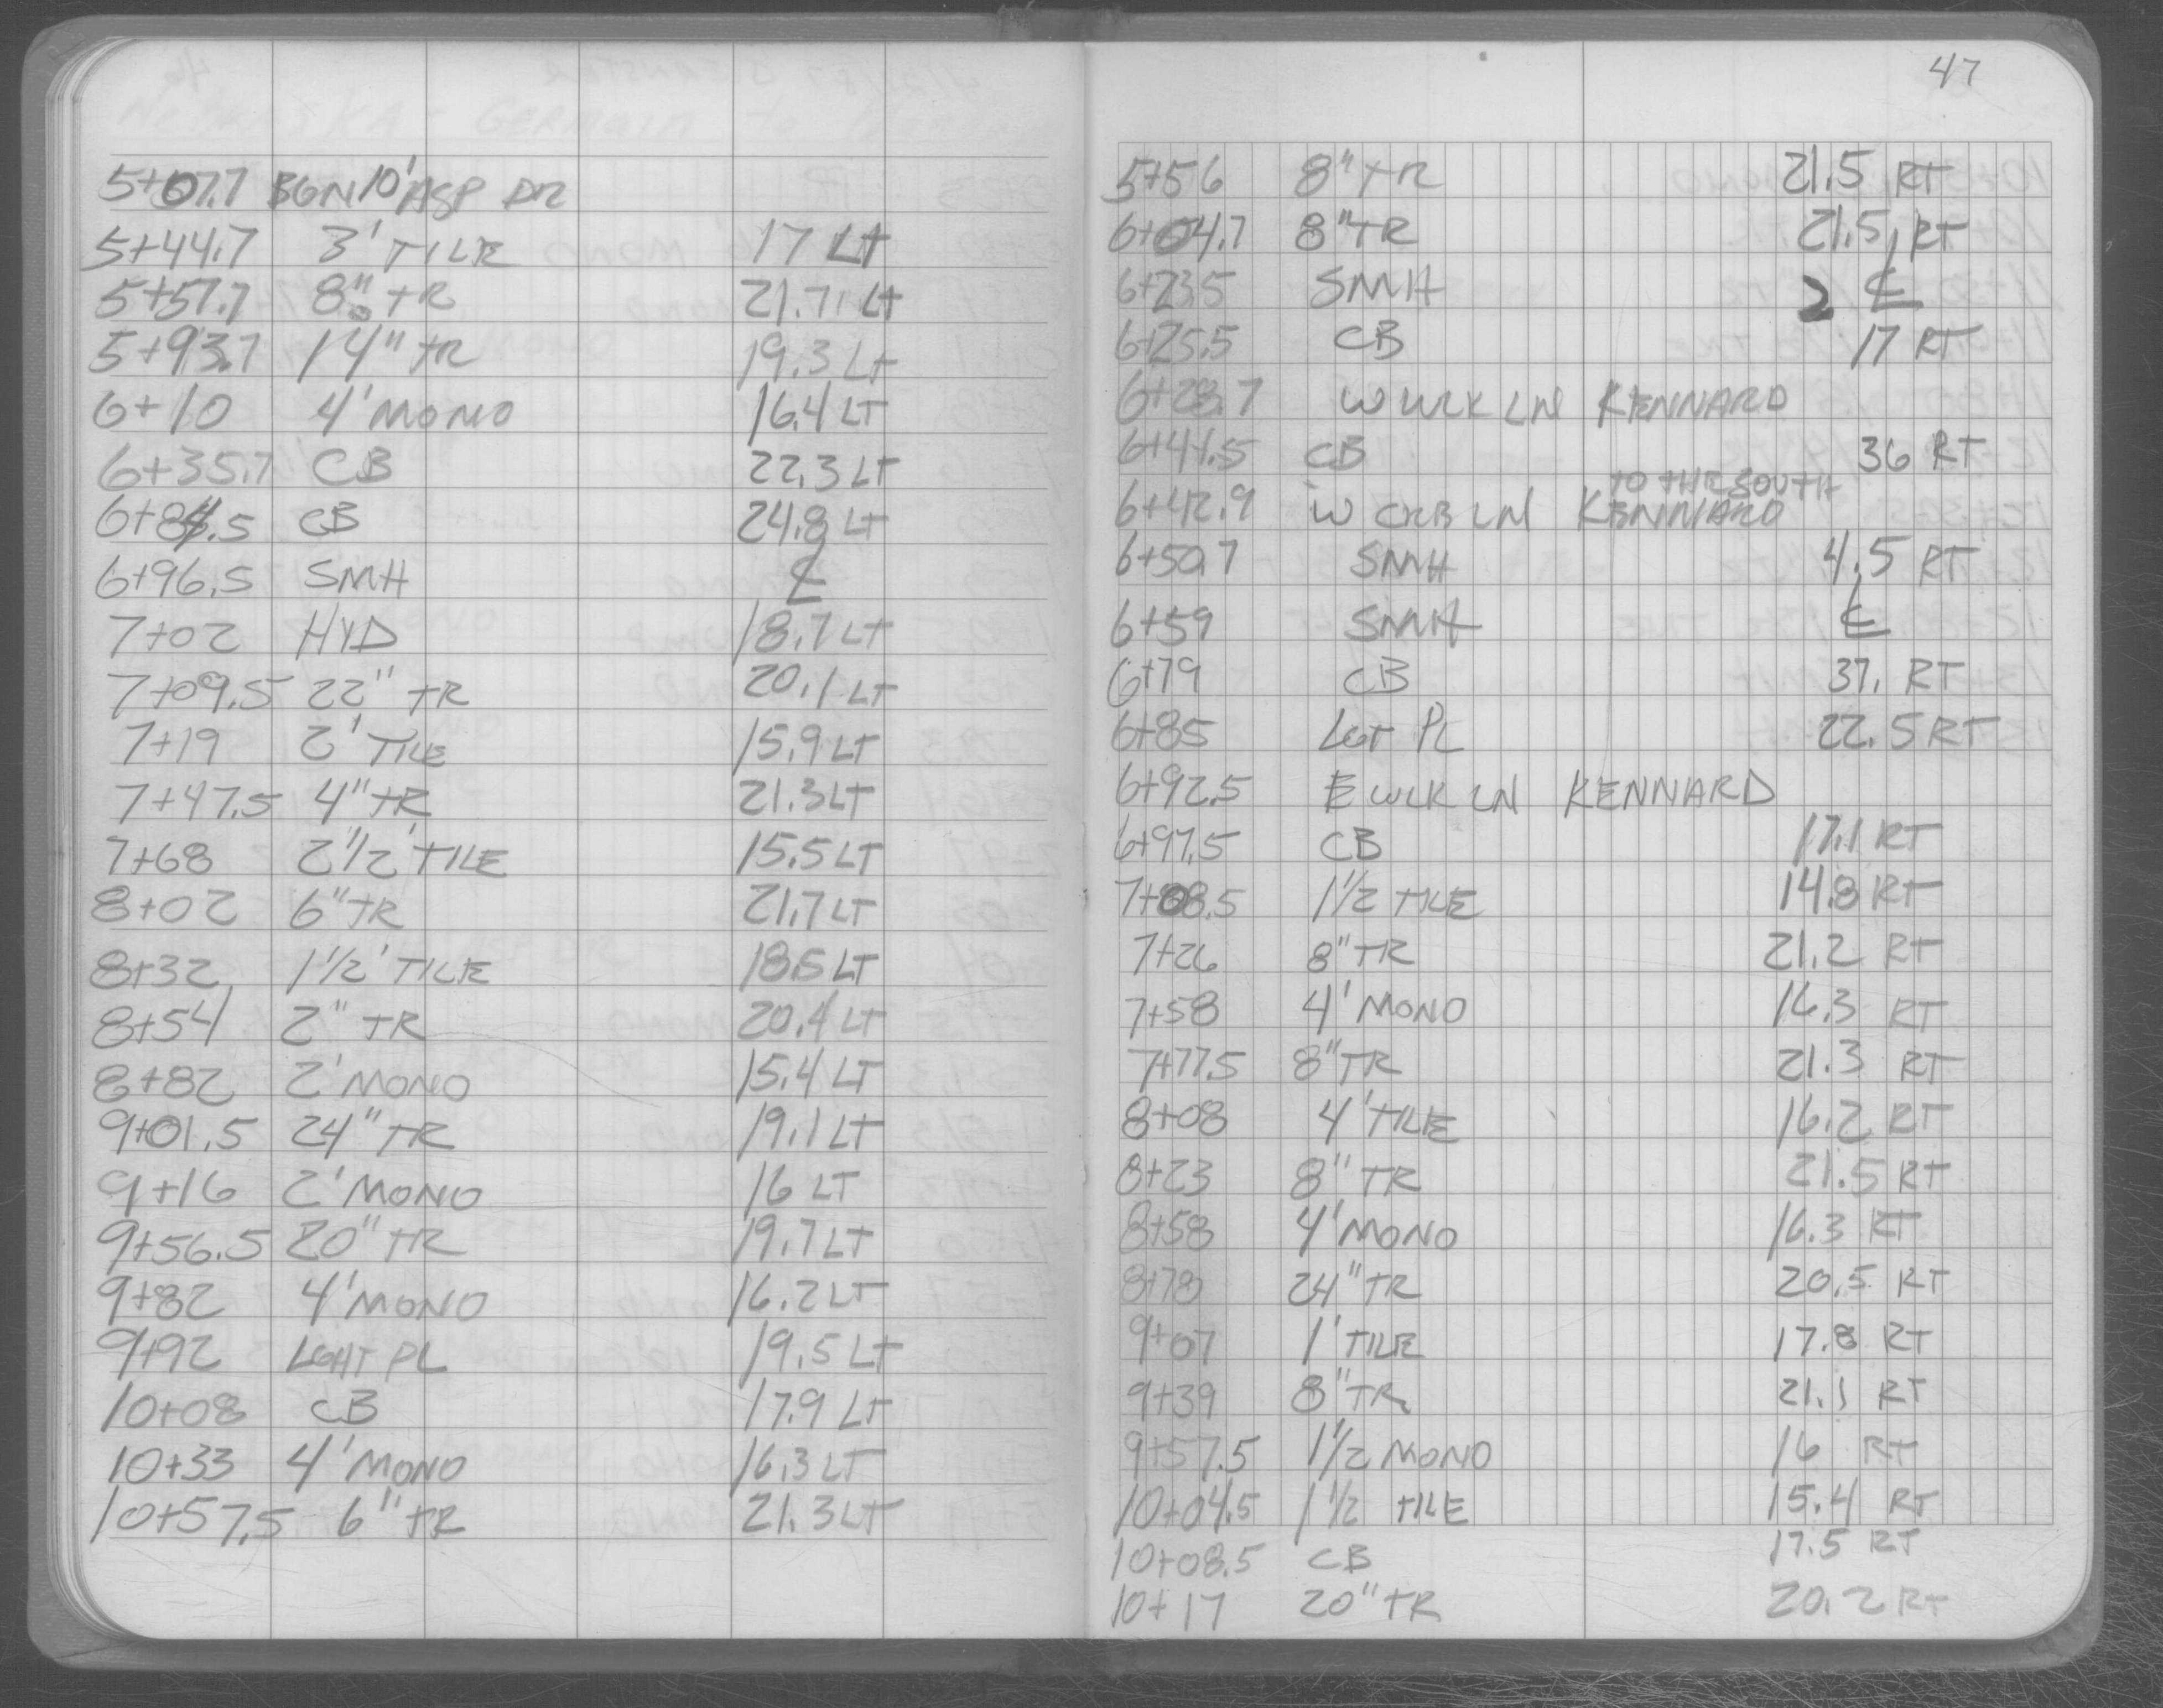 5+07.7 BGN 10' ASP DR
5+44.7 3' TILE 17 LT
5+57.7 8" TR 21.7 LT
5+93.7 14" TR 19.3 LT
6+10 4' MONO 16.4 LT
6+35.7 CB 22.3 LT
6+84.5 CB 24.8 LT
6+96.5 SMH ℄
7+02 HYD 18.7 LT
7+09.5 22" TR 20.1 LT
7+19 2' TILE 15.9 LT
7+47.5 4" TR 21.3 LT
7+68 2 1/2' TILE 15.5 LT
8+02 6" TR 21.7 LT
8+32 1 1/2' TILE 18.5 LT
8+54 2" TR 20.4 LT
8+82 2' MONO 15.4 LT
9+01.5 24" TR 19.1 LT
9+16 2' MONO 16 LT
9+56.5 20" TR 19.7 LT
9+82 4' MONO 16.2 LT
9+92 LGHT PL 19.5 LT
10+08 CB 17.9 LT
10+33 4' MONO 16.3 LT
10+57.5 6" TR 21.3 LT
47
5+56 8" TR 21.5 RT
6+04.7 8" TR 21.5 RT
6+23.5 SMH 2 ℄
6+25.5 CB 17 RT
6+28.7 W WLK LN KENNARD
6+41.5 CB 36 RT
TO THE SOUTH
6+42.9 W CRB LN KENNARD
6+50.7 SMH 4.5 RT
6+59 SMH ℄
6+79 CB 37. RT
6+85 LGT PL 22.5 RT
6+92.5 E WLK LN KENNARD
6+97.5 CB 17.1 RT
7+08.5 1 1/2 TILE 14.8 RT
7+26 8" TR 21.2 RT
7+58 4' MONO 16.3 RT
7+77.5 8" TR 21.3 RT
8+08 4' TILE 16.2 RT
8+23 8" TR 21.5 RT
8+58 4' MONO 16.3 RT
8+78 24" TR 20.5 RT
9+07 1' TILE 17.8 RT
9+39 8" TR 21.1 RT
9+57.5 1 1/2 MONO 16 RT
10+04.5 1 1/2 TILE 15.4 RT
10+08.5 CB 17.5 RT
10+17 20" TR 20.2 RT